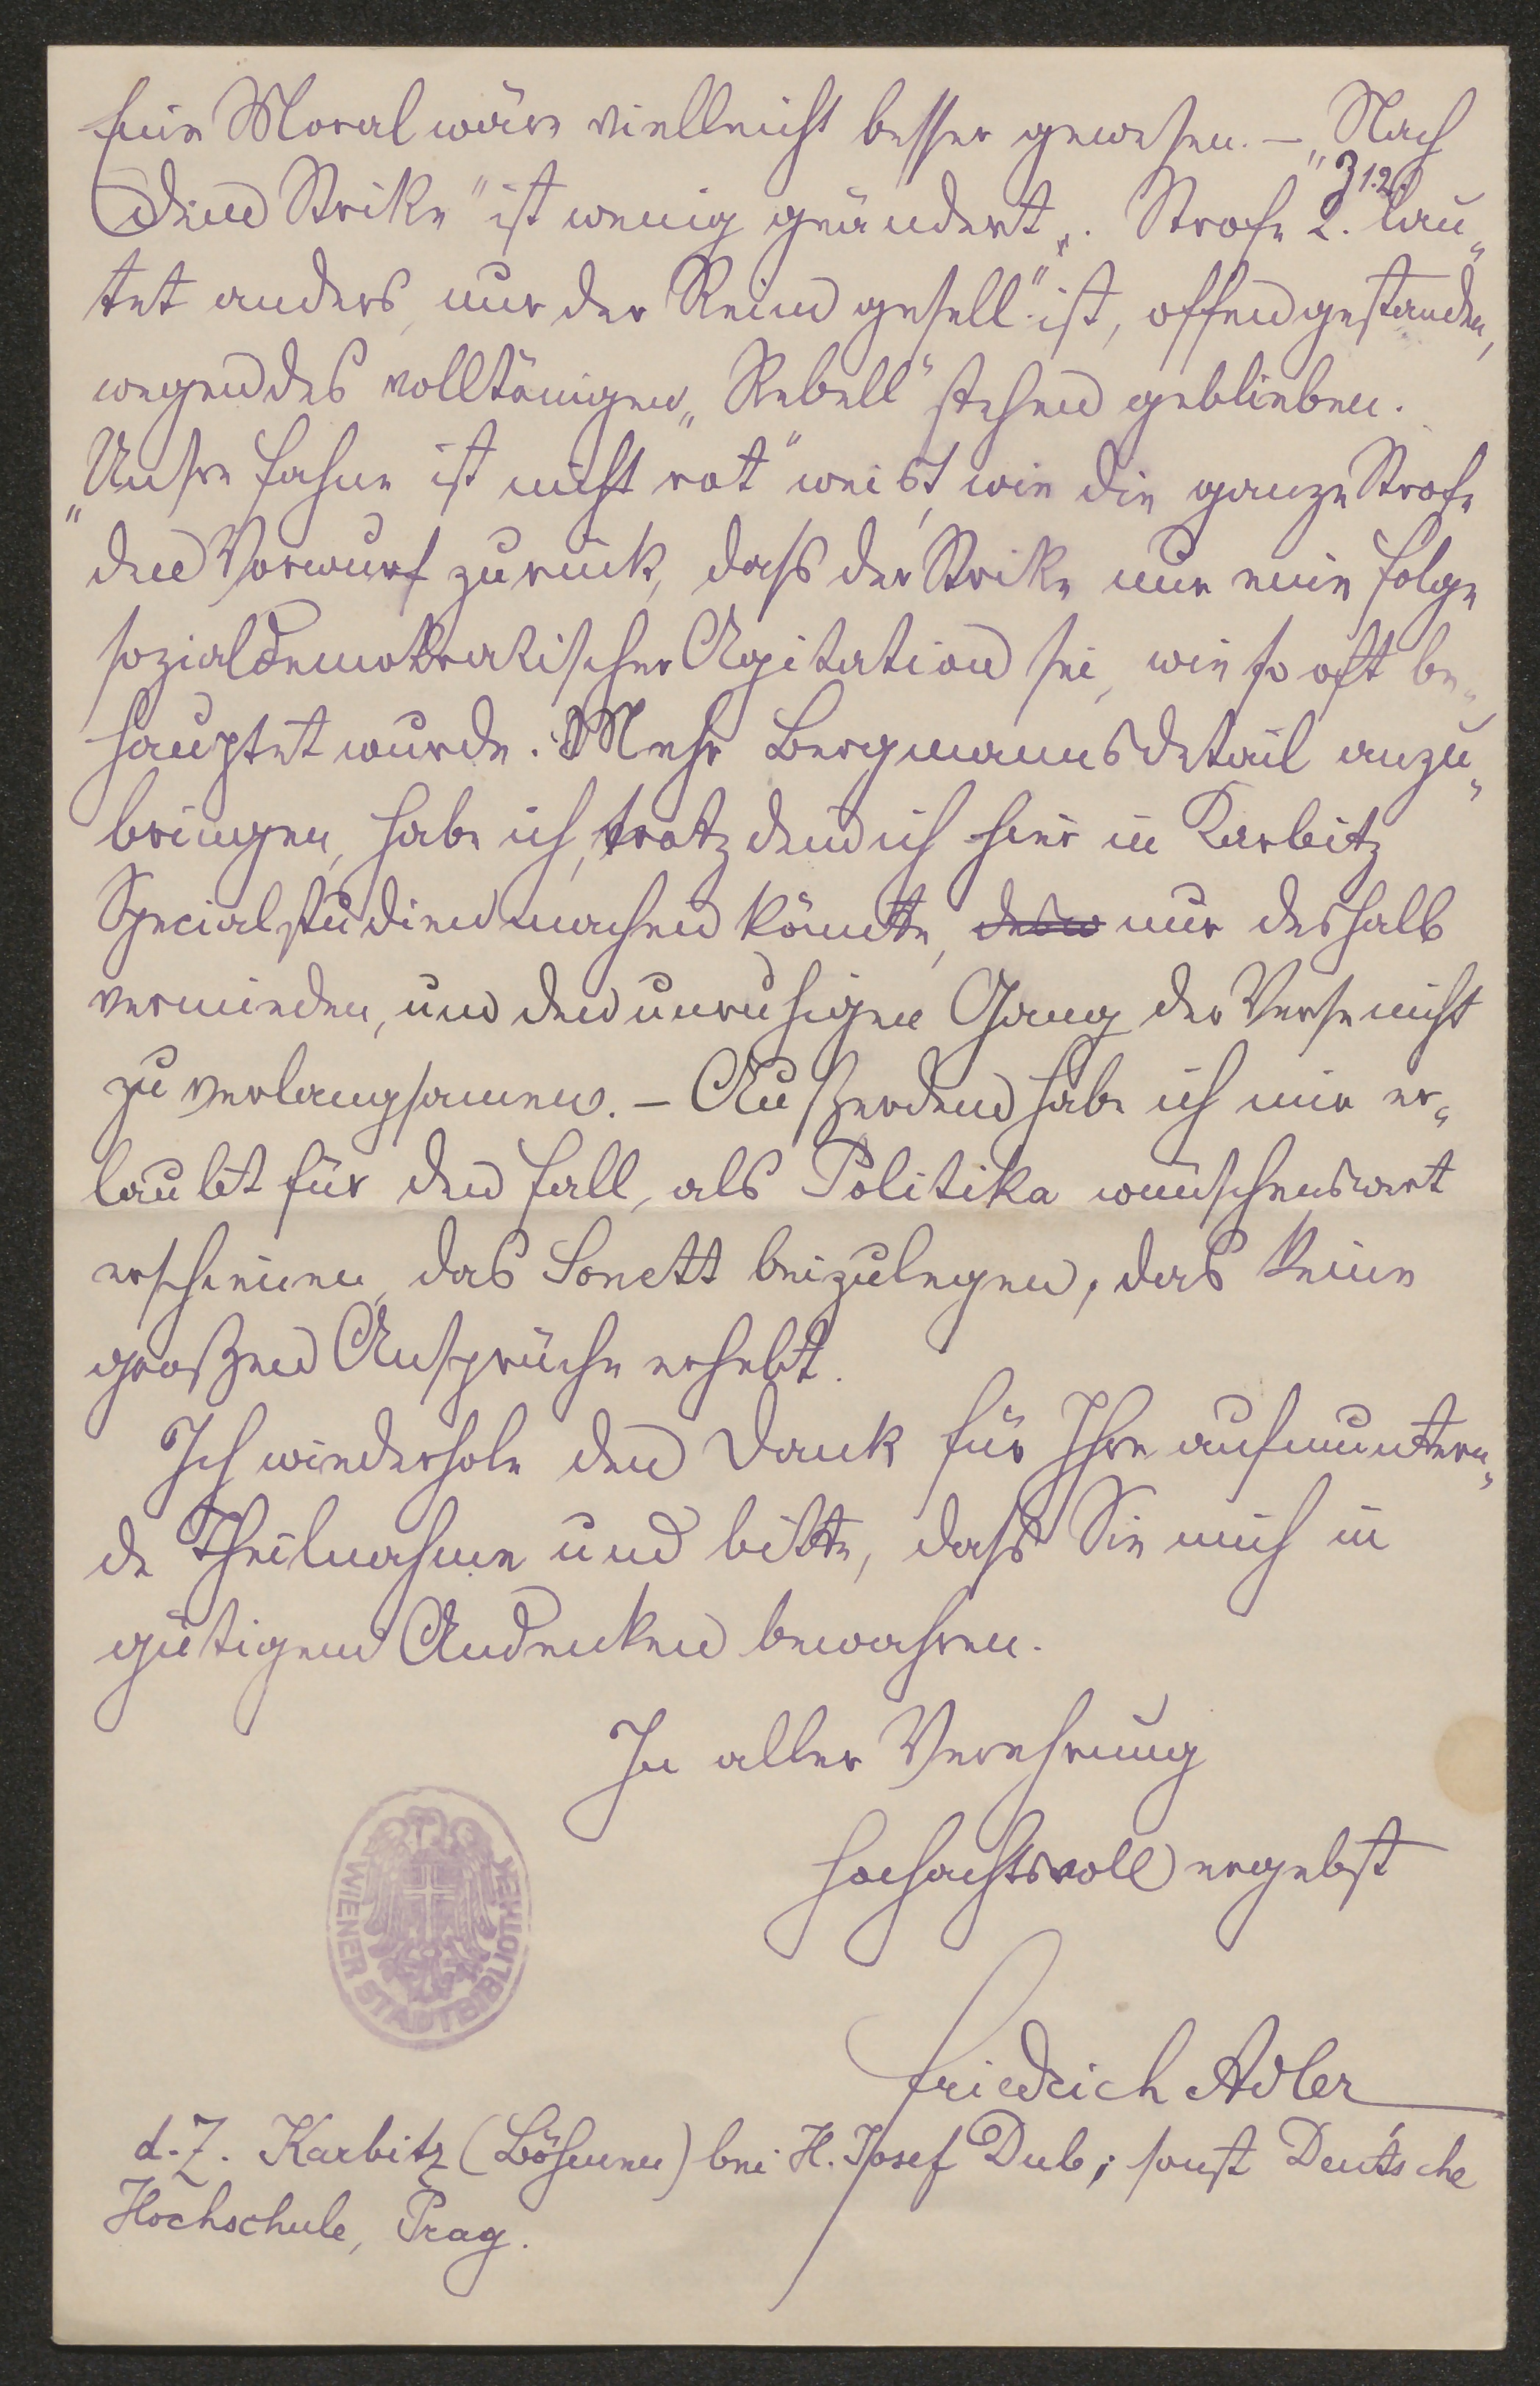 Eine Moral wäre vielleicht besser gewesen. – „Nach
dem Strike" ist wenig geändert. Strofe 2. Z 1.2. lau„
tet anders, nur der Reim gesell" ist, offen gestanden,
wegen des volltönigen „Rebell" stehen geblieben.
„Unsre Fahne ist nicht rot" weist, wie die ganze Strofe
den Vorwurf zurück, dass der Strike nur eine Folge
sozialdemokratischer Agitation sei, wie so oft be„
hauptet wurde. Mehr Bergmannsdetail anzu„
bringen, habe ich, trotzdem ich hier in Karbitz
Specialstudien machen könnte, nur deshalb
vermieden, um den unruhigen Gang der Verse nicht
zu verlangsamen. – Außerdem habe ich mir er„
laubt für den Fall, als Politika wünschenswert
erscheinen, das Sonett beizulegen, das keine
großen Ansprüche erhebt.
Ich wiederhole den Dank für Ihre aufmuntern„
de Theilnahme und bitte, dass Sie mich in
gütigem Andenken bewahren.
In aller Verehrung
hochachtsvoll ergebst
Friedrich Adler
d. Z. Karbitz (Böhmen) bei H. Josef Dub; sonst Deutsche
Hochschule, Prag.
WIENER STADTBIBLIOTHEK